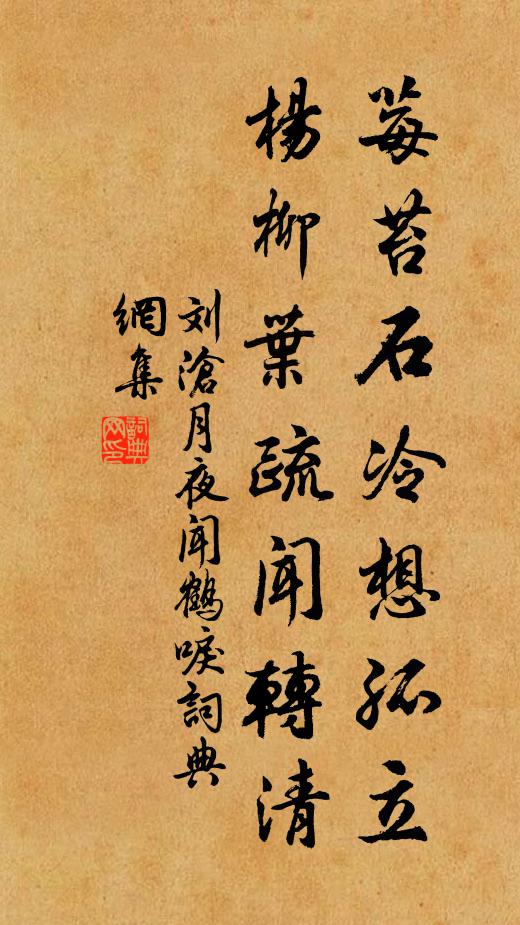 莓苔石冷想孤立
楊柳葉疏聞轉清
刘滄月夜聞鶴唳詞典
網集
詞典
网印